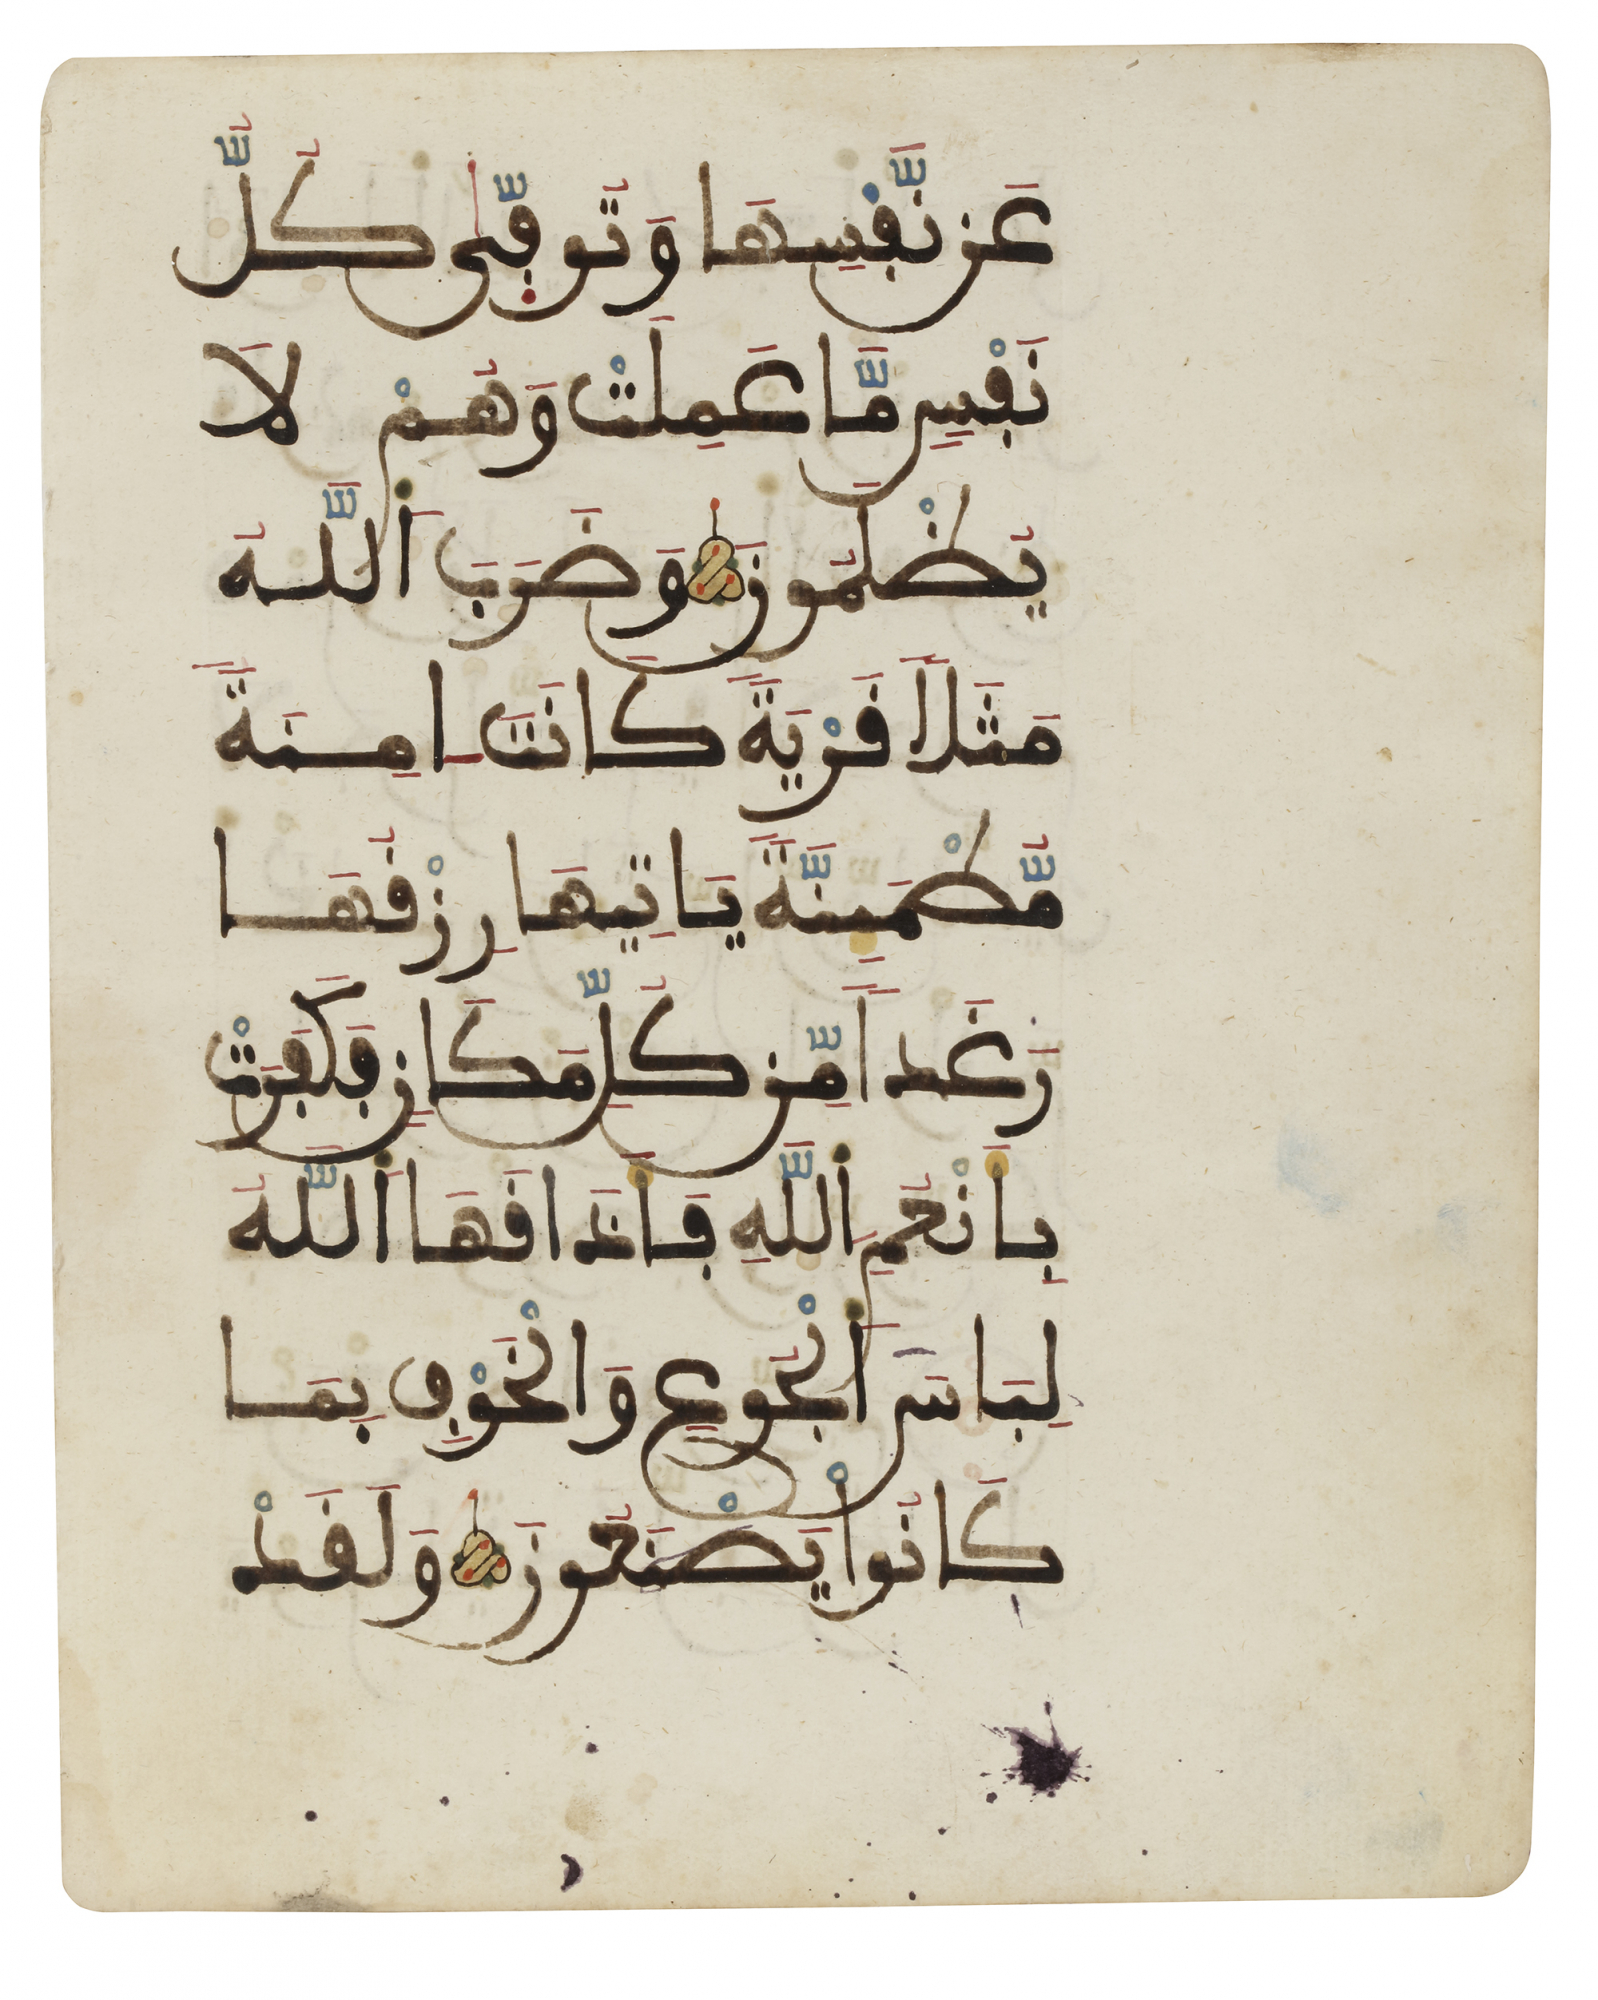 عَن نَّفْسِهَا وَتُوَفّٜىٰ كُلُّ
نَفْسٍ مَّا عَمِلَتْ وَهُمْ لَا
يُظْلَمُونَ وَضَرَبَ اَللَّهُ
مَثَلاً قَرْيَةً كَانَتَ اٰمِنَةً
مُّطْمَئِنَّةً يَاتِيهَا رِزْقُهَا
رَغَداً مِّن كُلِّ مَكَانٍ فَكَفَرَتْ
بِأَنْعُمِ اِللَّهِ فَأَذَاقَهَا اَللَّهُ
لِبَاسَ اَلْجُوعِ وَالْخَوْفِ بِمَا
كَانُواْ يَصْنَعُونَ وَلَقَدْ